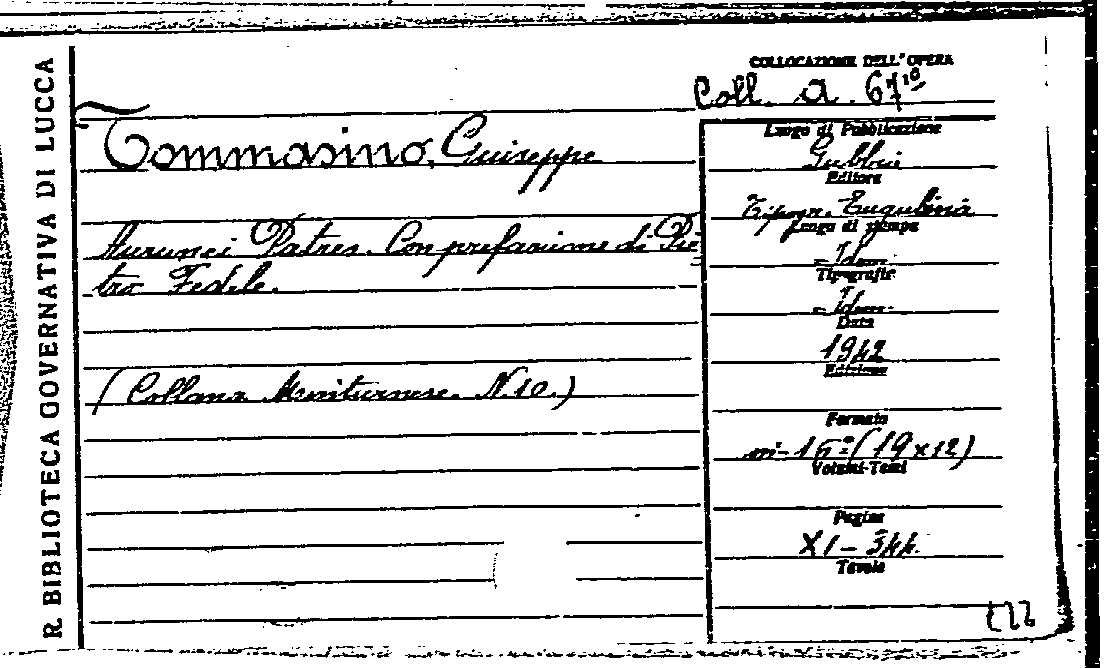 R. BIBLIOTECA GOVERNATIVA DI LUCCA
COLLOCAZIONE DELL'OPERA
Coll. A. 67¹⁰
Tommasino, Giuseppe
Aurunci Patres. Con prefazione di Pie
tro Fedele.
(Collana Minturnese. N. 10.)
Luogo di Pubblicazione
Gubbio
Editore
Tipogr. Eugubina
Luogo di stampa
- Idem -
Tipografie
- Idem -
Data
1942
Edizione
Formato
in-16° (19x12)
Volumi-Tomi
Pagine
XI - 344
Tavole